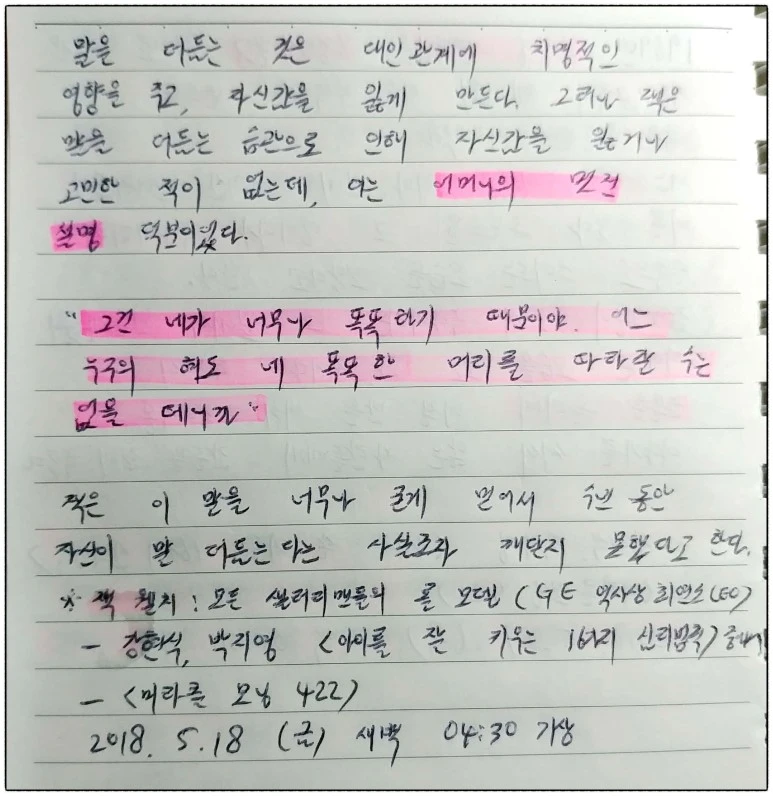 말을 더듬는 것은 대인관계에 치명적인
영향을 주고, 자신감을 잃게 만든다. 그러나 잭은
말을 더듬는 습관으로 인해 자신감을 잃거나
고민한 적이 없는데, 이는 어머니의 멋진
설명 덕분이었다.
"그건 네가 너무나 똑똑하기 때문이야. 어느
누구의 혀도 네 똑똑한 머리를 따라갈 수는
없을 테니까"
잭은 이 말을 너무나 굳게 믿어서 수년 동안
자신이 말 더듬는다는 사실조차 깨닫지 못했다고 한다.
* 잭 웰치 : 모든 샐러리맨들의 롤 모델 (GE 역사상 최연소 CEO)
- 강현식, 박지영 <아이를 잘 키우는 16가지 심리법칙> 중에서
- <미라클 모닝 422>
2018. 5. 18 (금) 새벽 04:30 기상